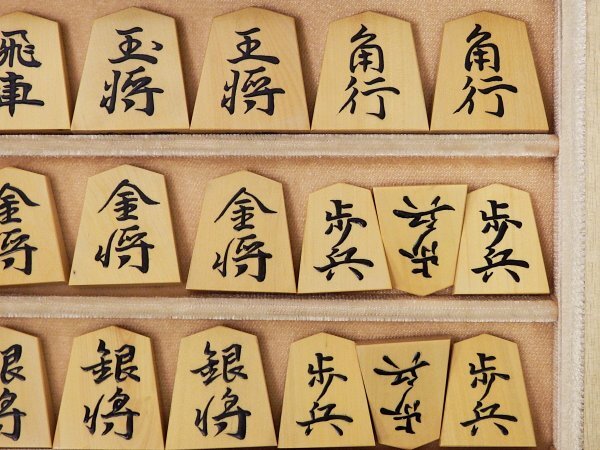 飛車 玉将 王将 角行 角行
金将 金将 金将 歩兵 歩兵 歩兵
銀将 銀将 銀将 歩兵 歩兵 歩兵